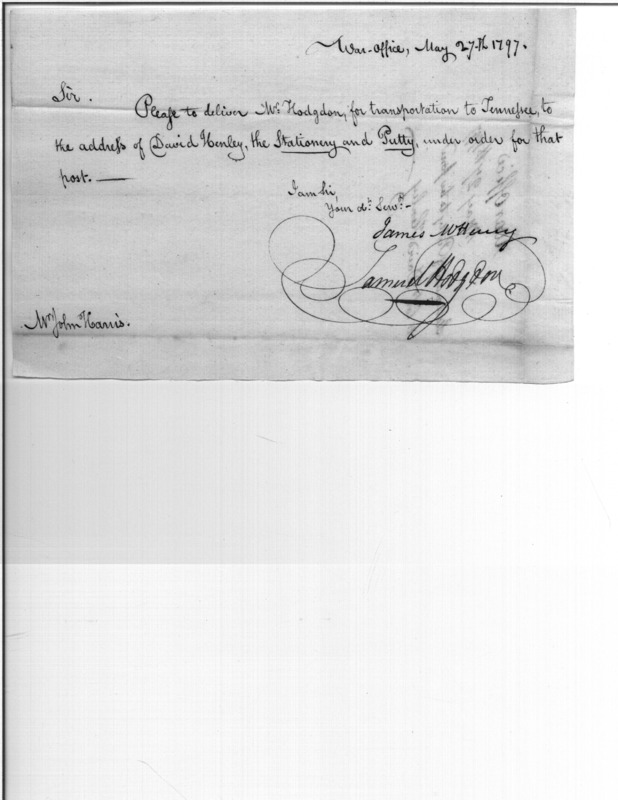 War-Office, May 27th 1797.
Sir.
Please to deliver Mr. Hodgdon, for transportation to Tennessee, to
the address of David Henley, the Stationery and Putty, under order for that
post. —
I am Sir,
Your obt. Servt. -
James McHenry
Samuel Hodgdon
Mr. John Harris.